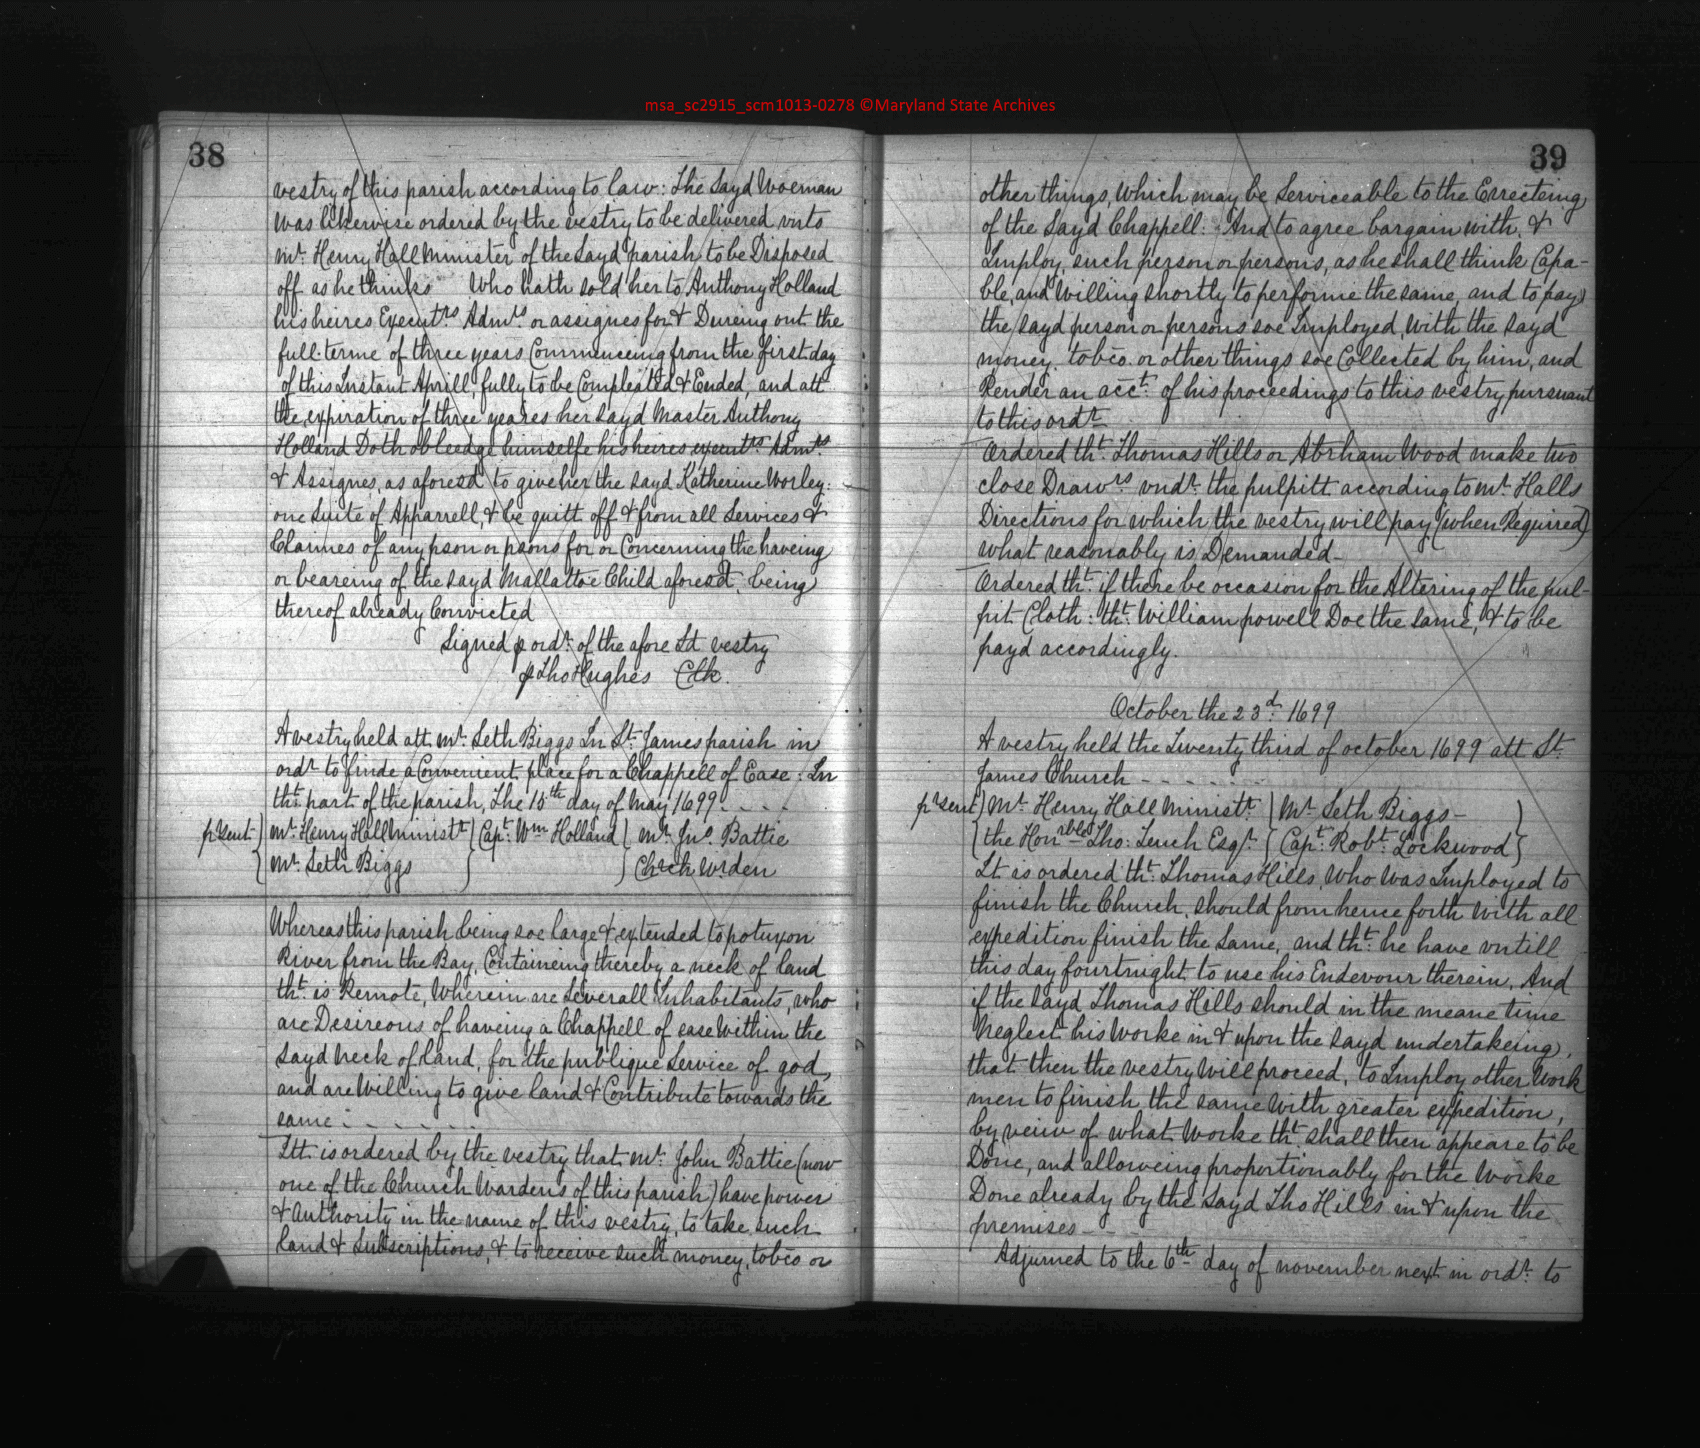 msa_sc2915_scm1013-0278 ©Maryland State Archives
38
vestry of this parish according to law: The Sayd Woeman
Was likewise ordered by the vestry to be delivered vnto
Mr. Henry Hall Minister of the Sayd parish to be Disposed
off as he thinks Who hath sold her to Anthony Holland
his heires Executrs Admrs or assignes for & Dureing out the
full terme of three years Commenceing from the first day
of this Instant Aprill, fully to be Compleated & Ended, and att
the expiration of three yeares her Sayd Master Anthony
Holland Doth obleedge himselfe his heires executrs Admrs
& Assignes, as aforesd to give her the Sayd Katherine Worley:
one Suite of Apparrell, & be quitt off & from all Services &
Claimes of any pson or psons for or Concerning the haveing
or beareing of the Sayd Mallattoe Child aforesd, being
thereof already Convicted
Signed p ordr: of the afore Sd vestry
p Tho Hughes Clk.
A vestry held att Mr. Seth Biggs In St. James parish in
ordr to finde a Convenient place for a Chappell of Ease: In
tht part of the parish, The 15th day of May 1699 - - - -
prsent } Mr. Henry Hall Ministr } Capt. Wm Holland { Mr. Jno Battie
{ Mr. Seth Biggs } } Chrch Wrden
Whereas this parish being soe large & extended to potuxon
River from the Bay, Containeing thereby a neck of land
tht. is Remote, Wherein are Severall Inhabitants, who
are Desireous of haveing a Chappell of ease Within the
Sayd Neck of Land, for the publique Service of god,
and are Willing to give land & Contribute towards the
same: - - - - - -
Itt. is ordered by the vestry that Mr. John Battie (now
one of the Church Wardens of this parish) have power
& Authority in the name of this vestry, to take such
land & Subscriptions, & to receive such money, tobco or
39
other things, Which may be Serviceable to the Errecteing
of the Sayd Chappell: And to agree bargain with, &
Imploy, such person or persons, as he shall think Capa-
ble, and Willing shortly to performe the same, and to pay
the sayd person or persons soe Imployed, With the Sayd
money. tobco. or other things soe Collected by him, and
Render an acct. of his proceedings to this vestry pursuant
to this ordr.
Ordered tht. Thomas Hills or Abrham Wood make two
close Drawrs vndr. the pulpitt according to Mr. Halls
Directions for which the vestry will pay (when Required)
what reasonably is Demanded -
Ordered tht. if there be occasion for the Altering of the pul-
pit Cloth: tht. William powell Doe the same, & to be
payd accordingly.
October the 23d. 1699
A vestry held the Twenty third of october 1699 att St.
James Church - - - - - -
prsent } Mr. Henry Hall Ministr. } Mr. Seth Biggs - }
{ the Honrbles Tho: Tench Esqr. { Capt. Robt. Lockwood }
It is ordered tht. Thomas Hills, Who Was Imployed to
finish the Church, should from hence forth With all
expedition finish the Same, and tht. he have vntill
this day fourtnight to use his Endevour therein, And
if the Sayd Thomas Hills should in the meane time
Neglect his Worke in & upon the Sayd undertakeing,
that then the vestry Will proceed, to Imploy other Work
men to finish the same With greater expedition,
by veiw of what Worke tht. shall then appeare to be
Done, and alloweing proportionably for the Worke
Done already by the Sayd Tho Hills in & upon the
premises - - -
Adjurned to the 6th day of november next in ordr. to